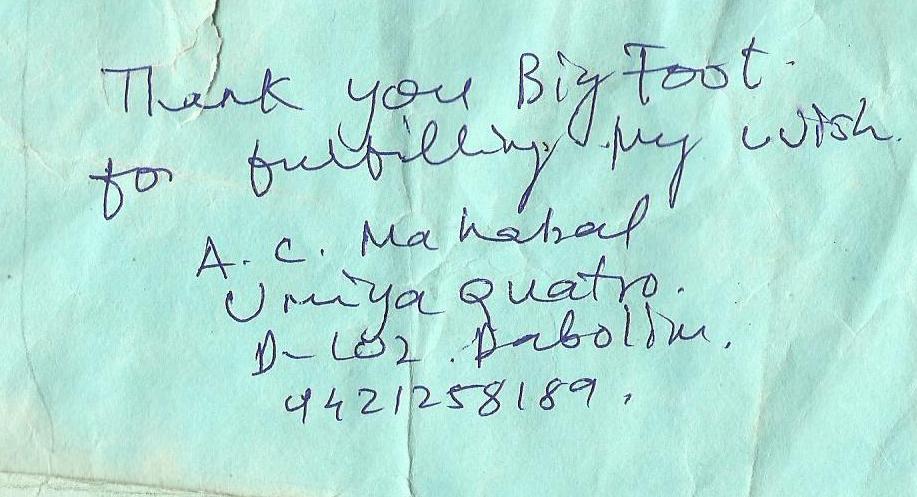 Thank you Big Foot.
for fulfilling my wish.
A. C. Mahabal
Umiya Quatro.
D-102. Dabolim.
9421258189.